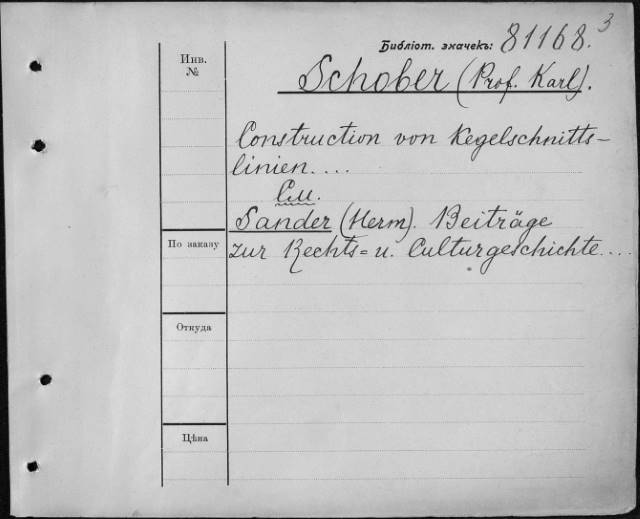 3
Библіот. значекъ: 81168.
Инв.
№
Schober (Prof. Karl).
Construction von Kegelschnitts-
linien....
См.
Sander (Herm). Beiträge
zur Rechts= u. Culturgeschichte....
По заказу
Откуда
Цѣна